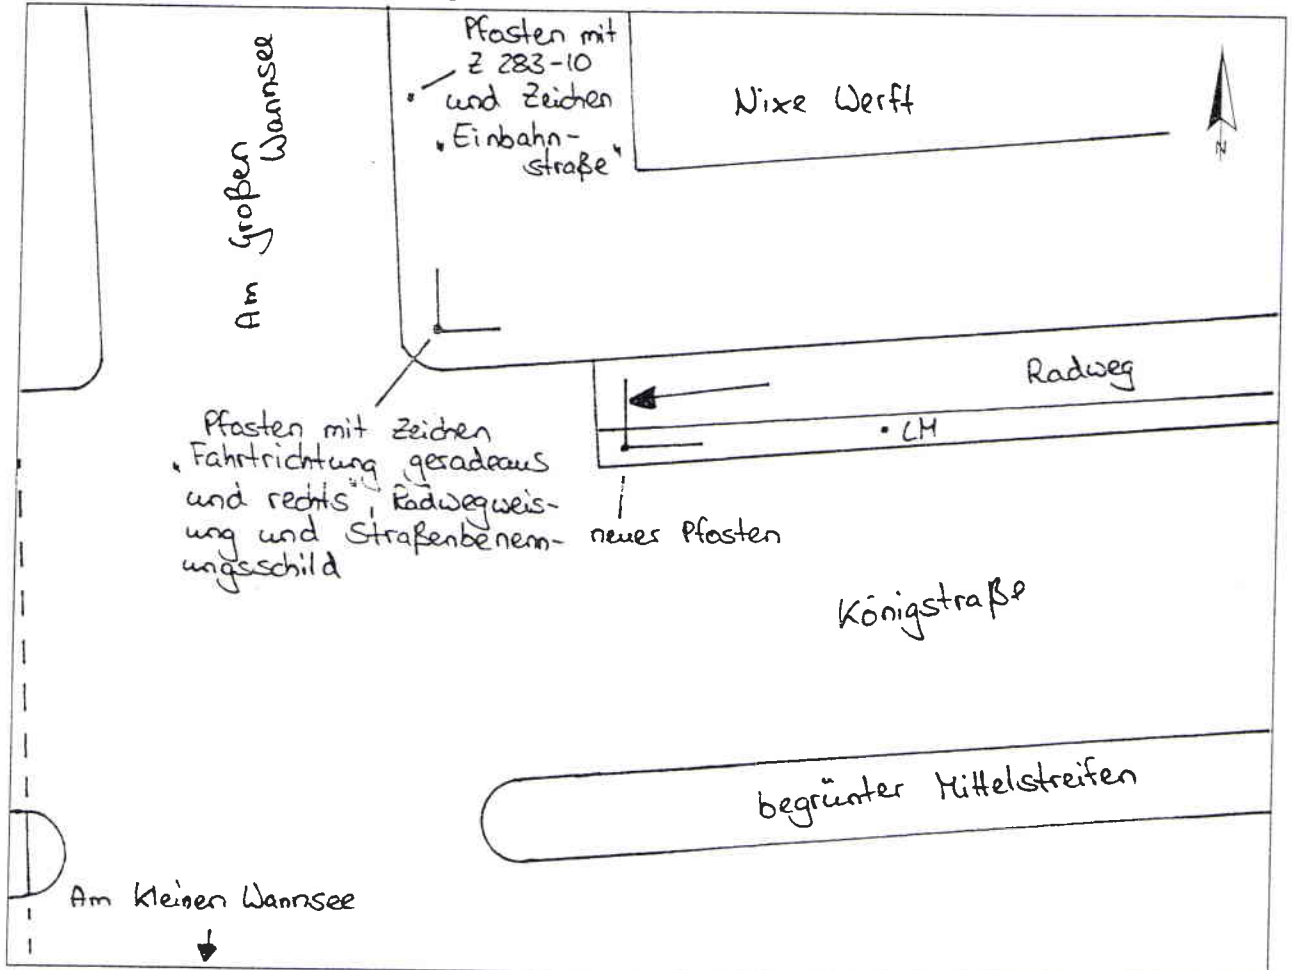 Pfosten mit
Z 283-10
und Zeichen
"Einbahn-
straße"
Nixe Werft
N
Am Großen
Wannsee
Radweg
LM
Pfosten mit Zeichen
"Fahrtrichtung geradeaus
und rechts", Radwegweis-
ung und Straßenbenenn-
ungsschild
neuer Pfosten
Königstraße
begrünter Mittelstreifen
Am Kleinen Wannsee